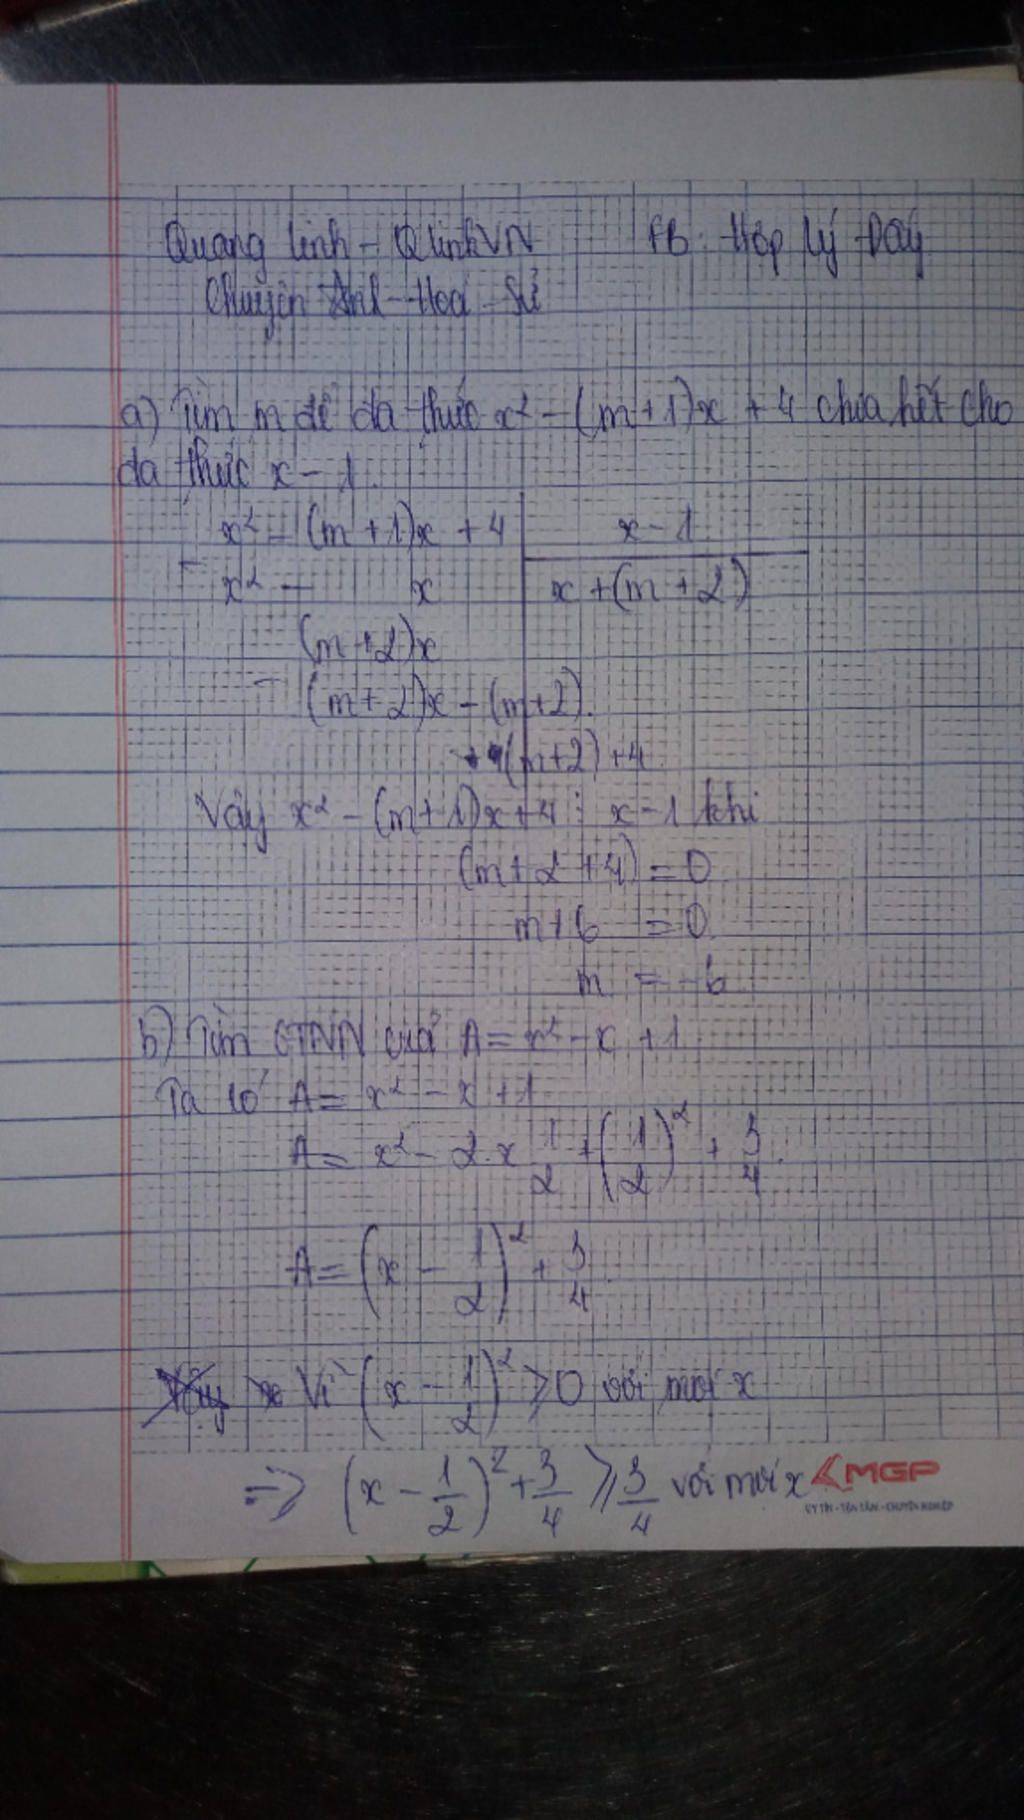 Quang Linh - QlinhVN FB: Hộp Lý Đay
Chuyên Anh - Hoá - Sử
a) Tìm m để đa thức x² - (m+1)x + 4 chia hết cho
đa thức x - 1.
x² - (m+1)x + 4 | x - 1
- x² - x | x + (m+2)
(m+2)x
- (m+2)x - (m+2).
(m+2) + 4
Vậy x² - (m+1)x + 4 ⋮ x - 1 khi
(m+2+4) = 0
m+6 = 0
m = -6
b) Tìm GTNN của A = x² - x + 1.
Ta có A = x² - x + 1
A = x² - 2.x 1/2 + (1/2)² + 3/4.
A = (x - 1/2)² + 3/4
Vì (x - 1/2)² ⩾ 0 với mọi x
=> (x - 1/2)² + 3/4 ⩾ 3/4 với mọi x
MGP
UY TÍN - TẬN TÂM - CHUYÊN NGHIỆP